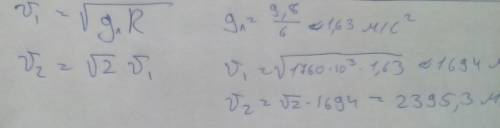 v₁ = √(gₙR)
gₙ = 9,8/6 ≈ 1,63 м/с²
v₂ = √2 v₁
v₁ = √(1760·10³·1,63) ≈ 1694 м
v₂ = √2 · 1694 = 2395,3 м